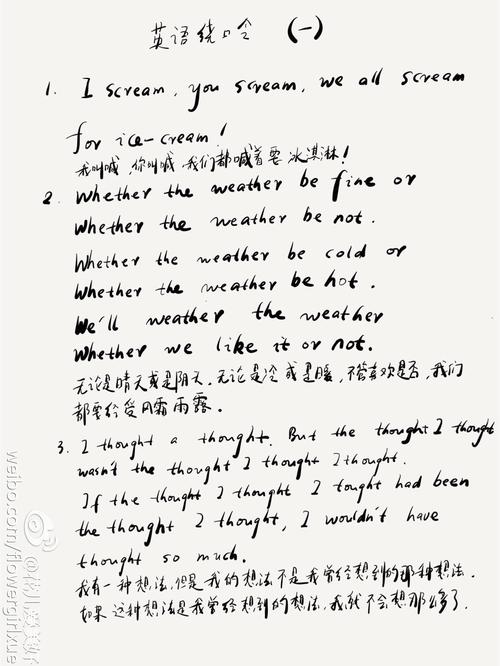 英语绕口令 (一)
1. I scream, you scream, we all scream
for ice-cream!
我叫喊,你叫喊,我们都喊着要冰淇淋!
2. Whether the weather be fine or
Whether the weather be not.
Whether the weather be cold or
Whether the weather be hot.
We'll weather the weather
Whether we like it or not.
无论是晴天或是阴天,无论是冷或是暖,不管喜欢是否,我们
都要经受风霜雨露.
3. I thought a thought. But the thought I thought
wasn't the thought I thought I thought.
If the thought I thought I tought had been
the thought I thought, I wouldn't have
thought so much.
我有一种想法,但是我的想法不是我曾经想到的那种想法.
如果这种想法是我曾经想到的想法,我就不会想那么多了.
weibo.com/flowergirlxue